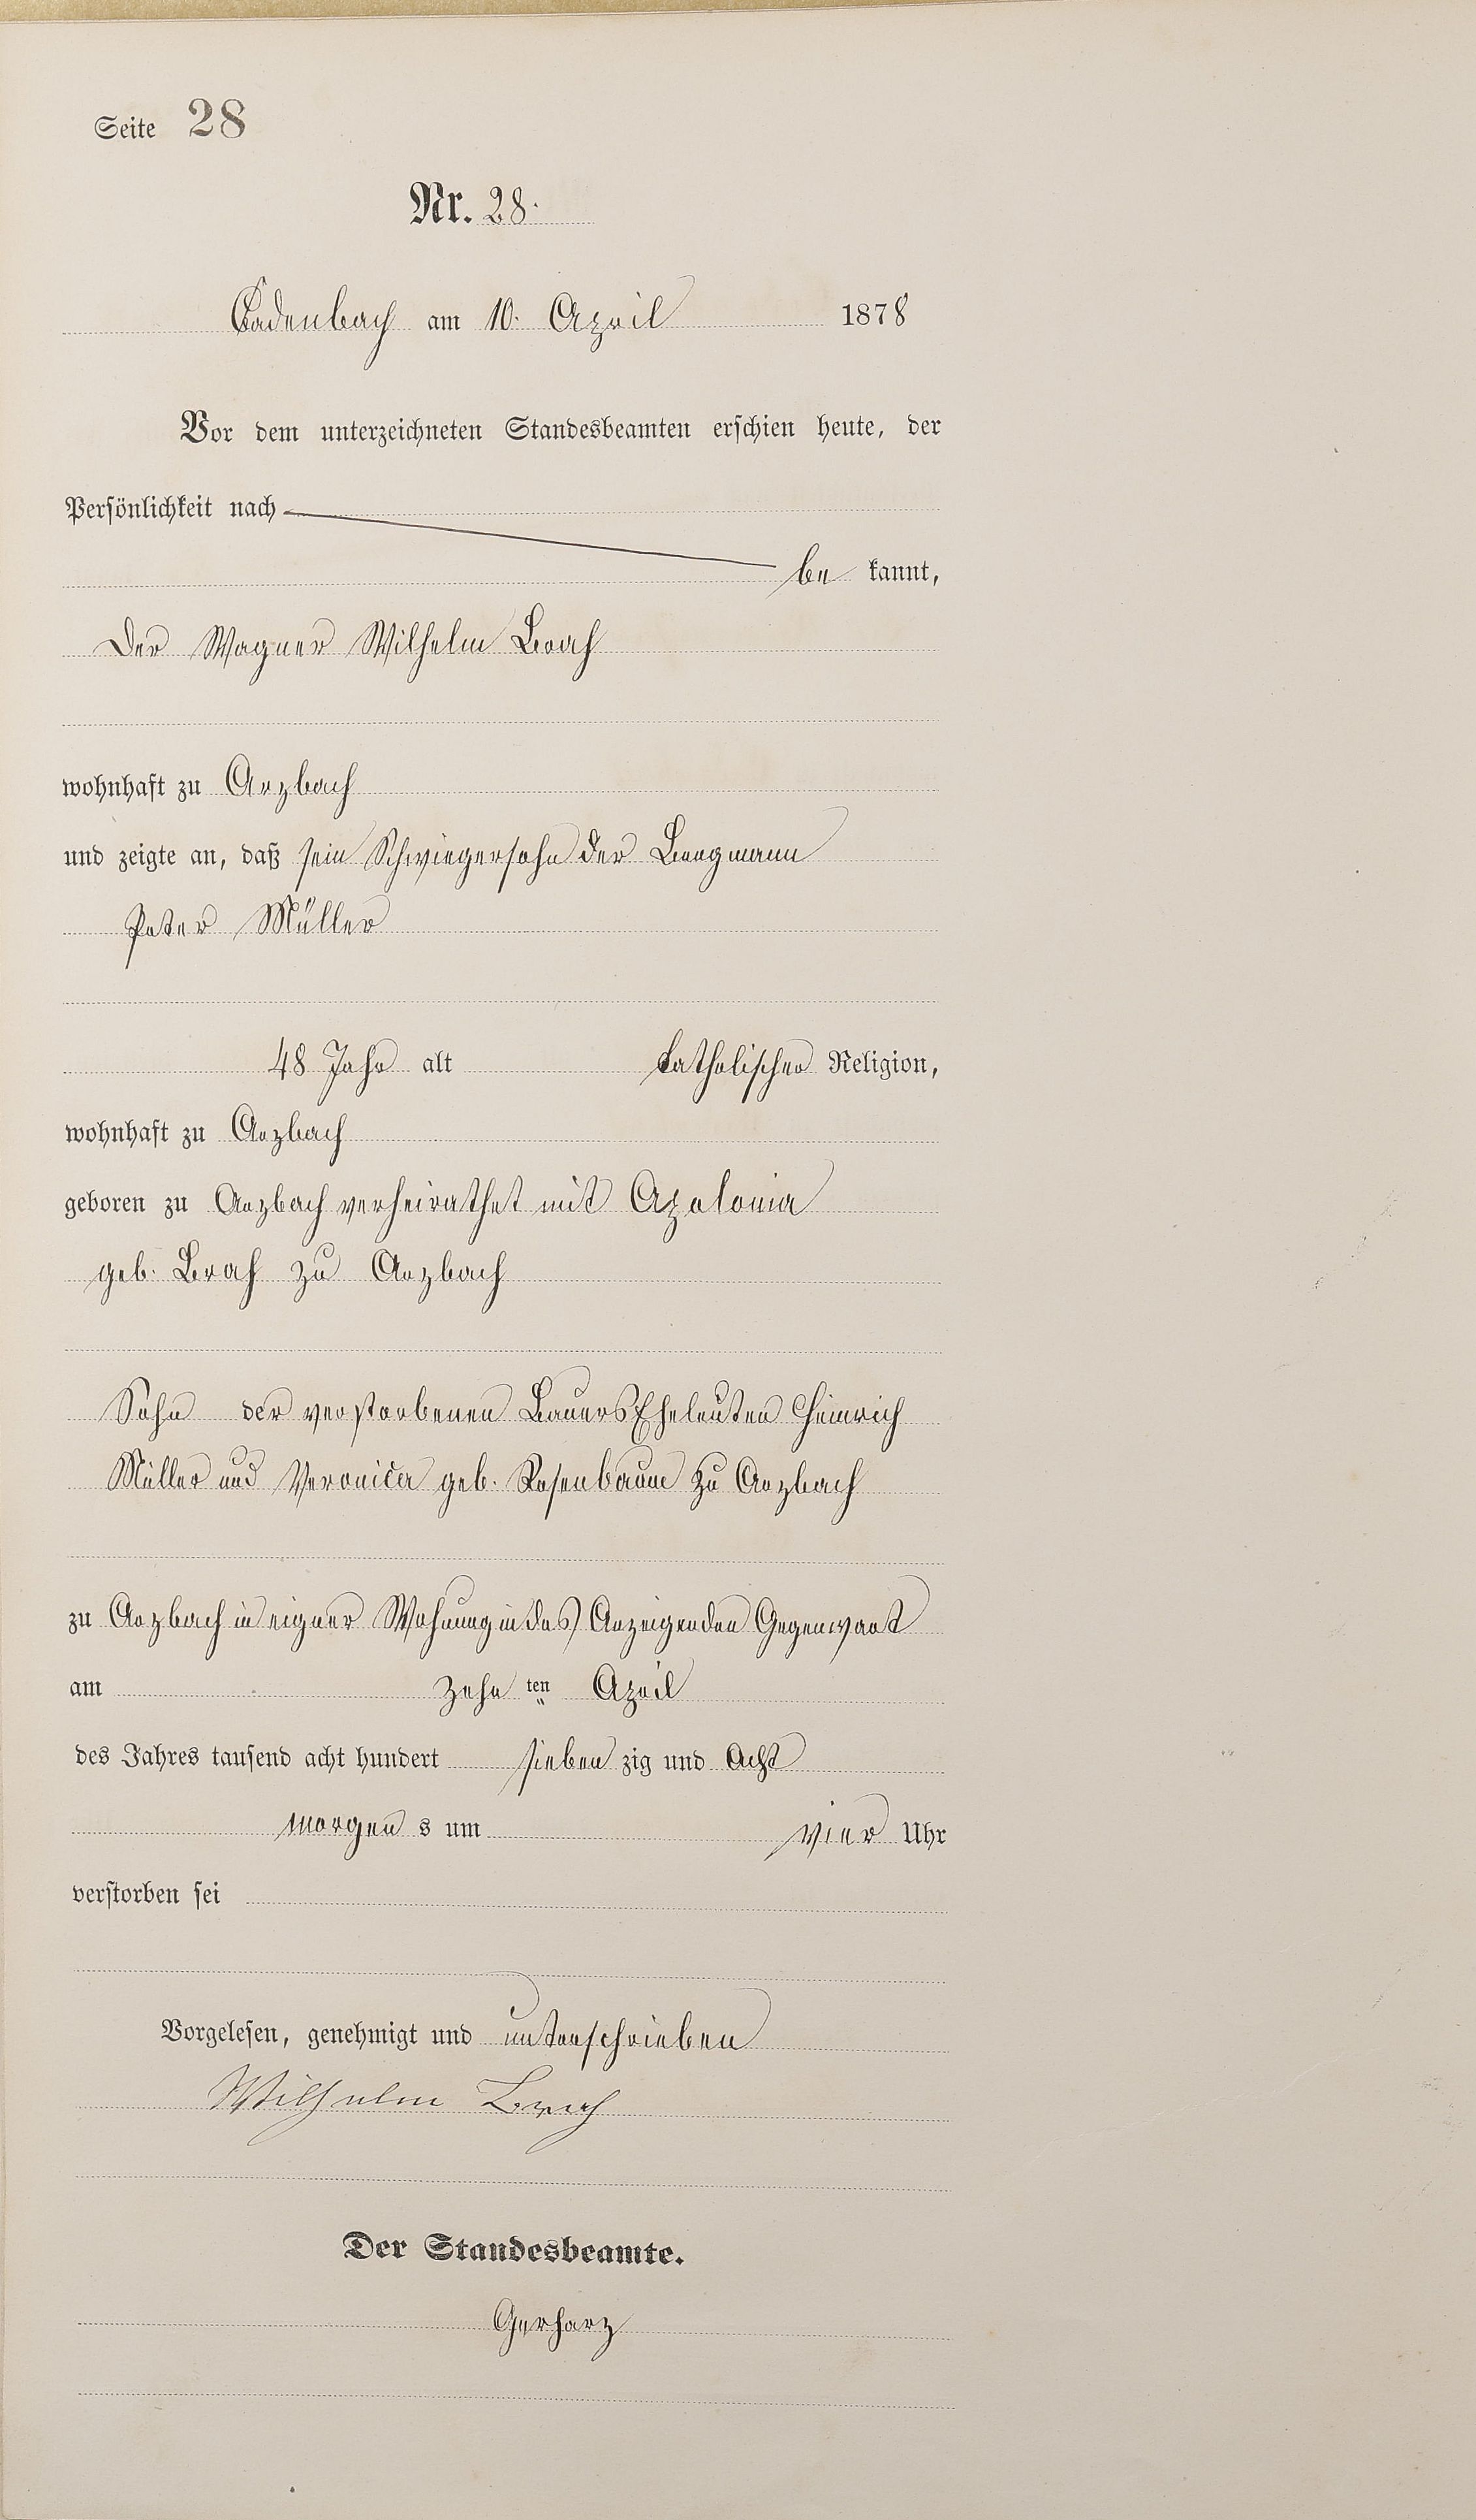 Seite 28
Nr. 28.
Cadenbach am 10. April 1878
Vor dem unterzeichneten Standesbeamten erschien heute, der
Persönlichkeit nach
be kannt,
der Wagner Wilhelm Brah
wohnhaft zu Arzbach
und zeigte an, daß sein Schwiegersohn der Bergmann
Peter Müller
48 Jahr alt katholischer Religion,
wohnhaft zu Arzbach
geboren zu Arzbach verheirathet mit Apolonia
geb. Brah zu Arzbach
Sohn der verstorbenen Bauers Eheleuten Heinrich
Müller und Veronica geb. Rosenbaum zu Arzbach
zu Arzbach in eigner Wohnung in des Anzeigenden Gegenwart
am zehn ten April
des Jahres tausend acht hundert sieben zig und Acht
morgen s um vier Uhr
verstorben sei
Vorgelesen, genehmigt und unterschrieben
Wilhelm Brah
Der Standesbeamte.
Gerharz